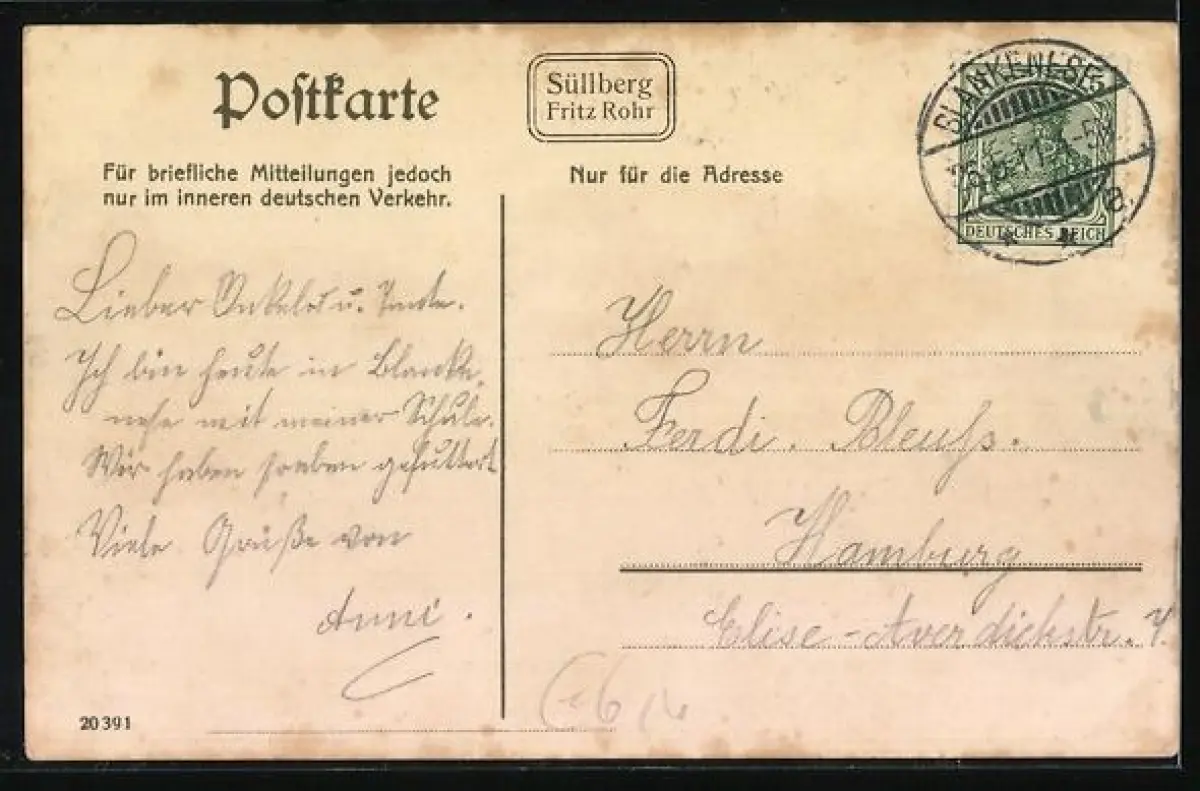 Postkarte
Für briefliche Mitteilungen jedoch
nur im inneren deutschen Verkehr.
Süllberg
Fritz Rohr
Nur für die Adresse
BLANKENESE
DEUTSCHES REICH
Lieber Onkel u. Tante.
Ich bin heute in Blanke
nese mit meiner Schule.
Wir haben soeben gefuttert
Viele Grüße von
Anni.
Herrn
Ferdi. Bleuss.
Hamburg
Elise-Averdickstr.
20391